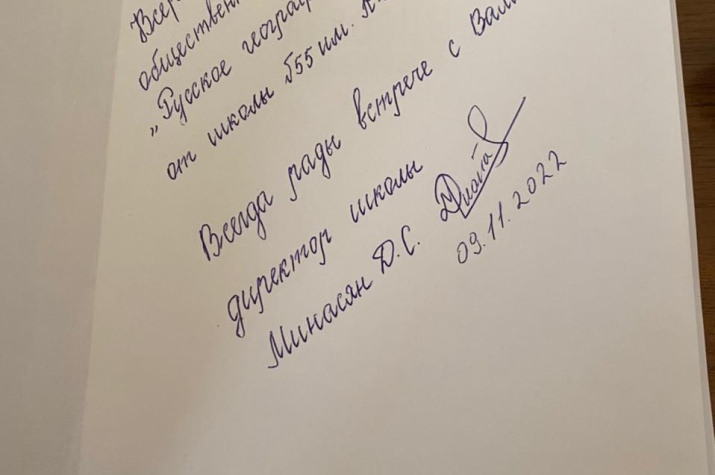 Всер
общественн
„Русское географ
от школы №55 им. А.
Всегда рады встрече с Вами
директор школы
Минасян Д.С.
09.11.2022